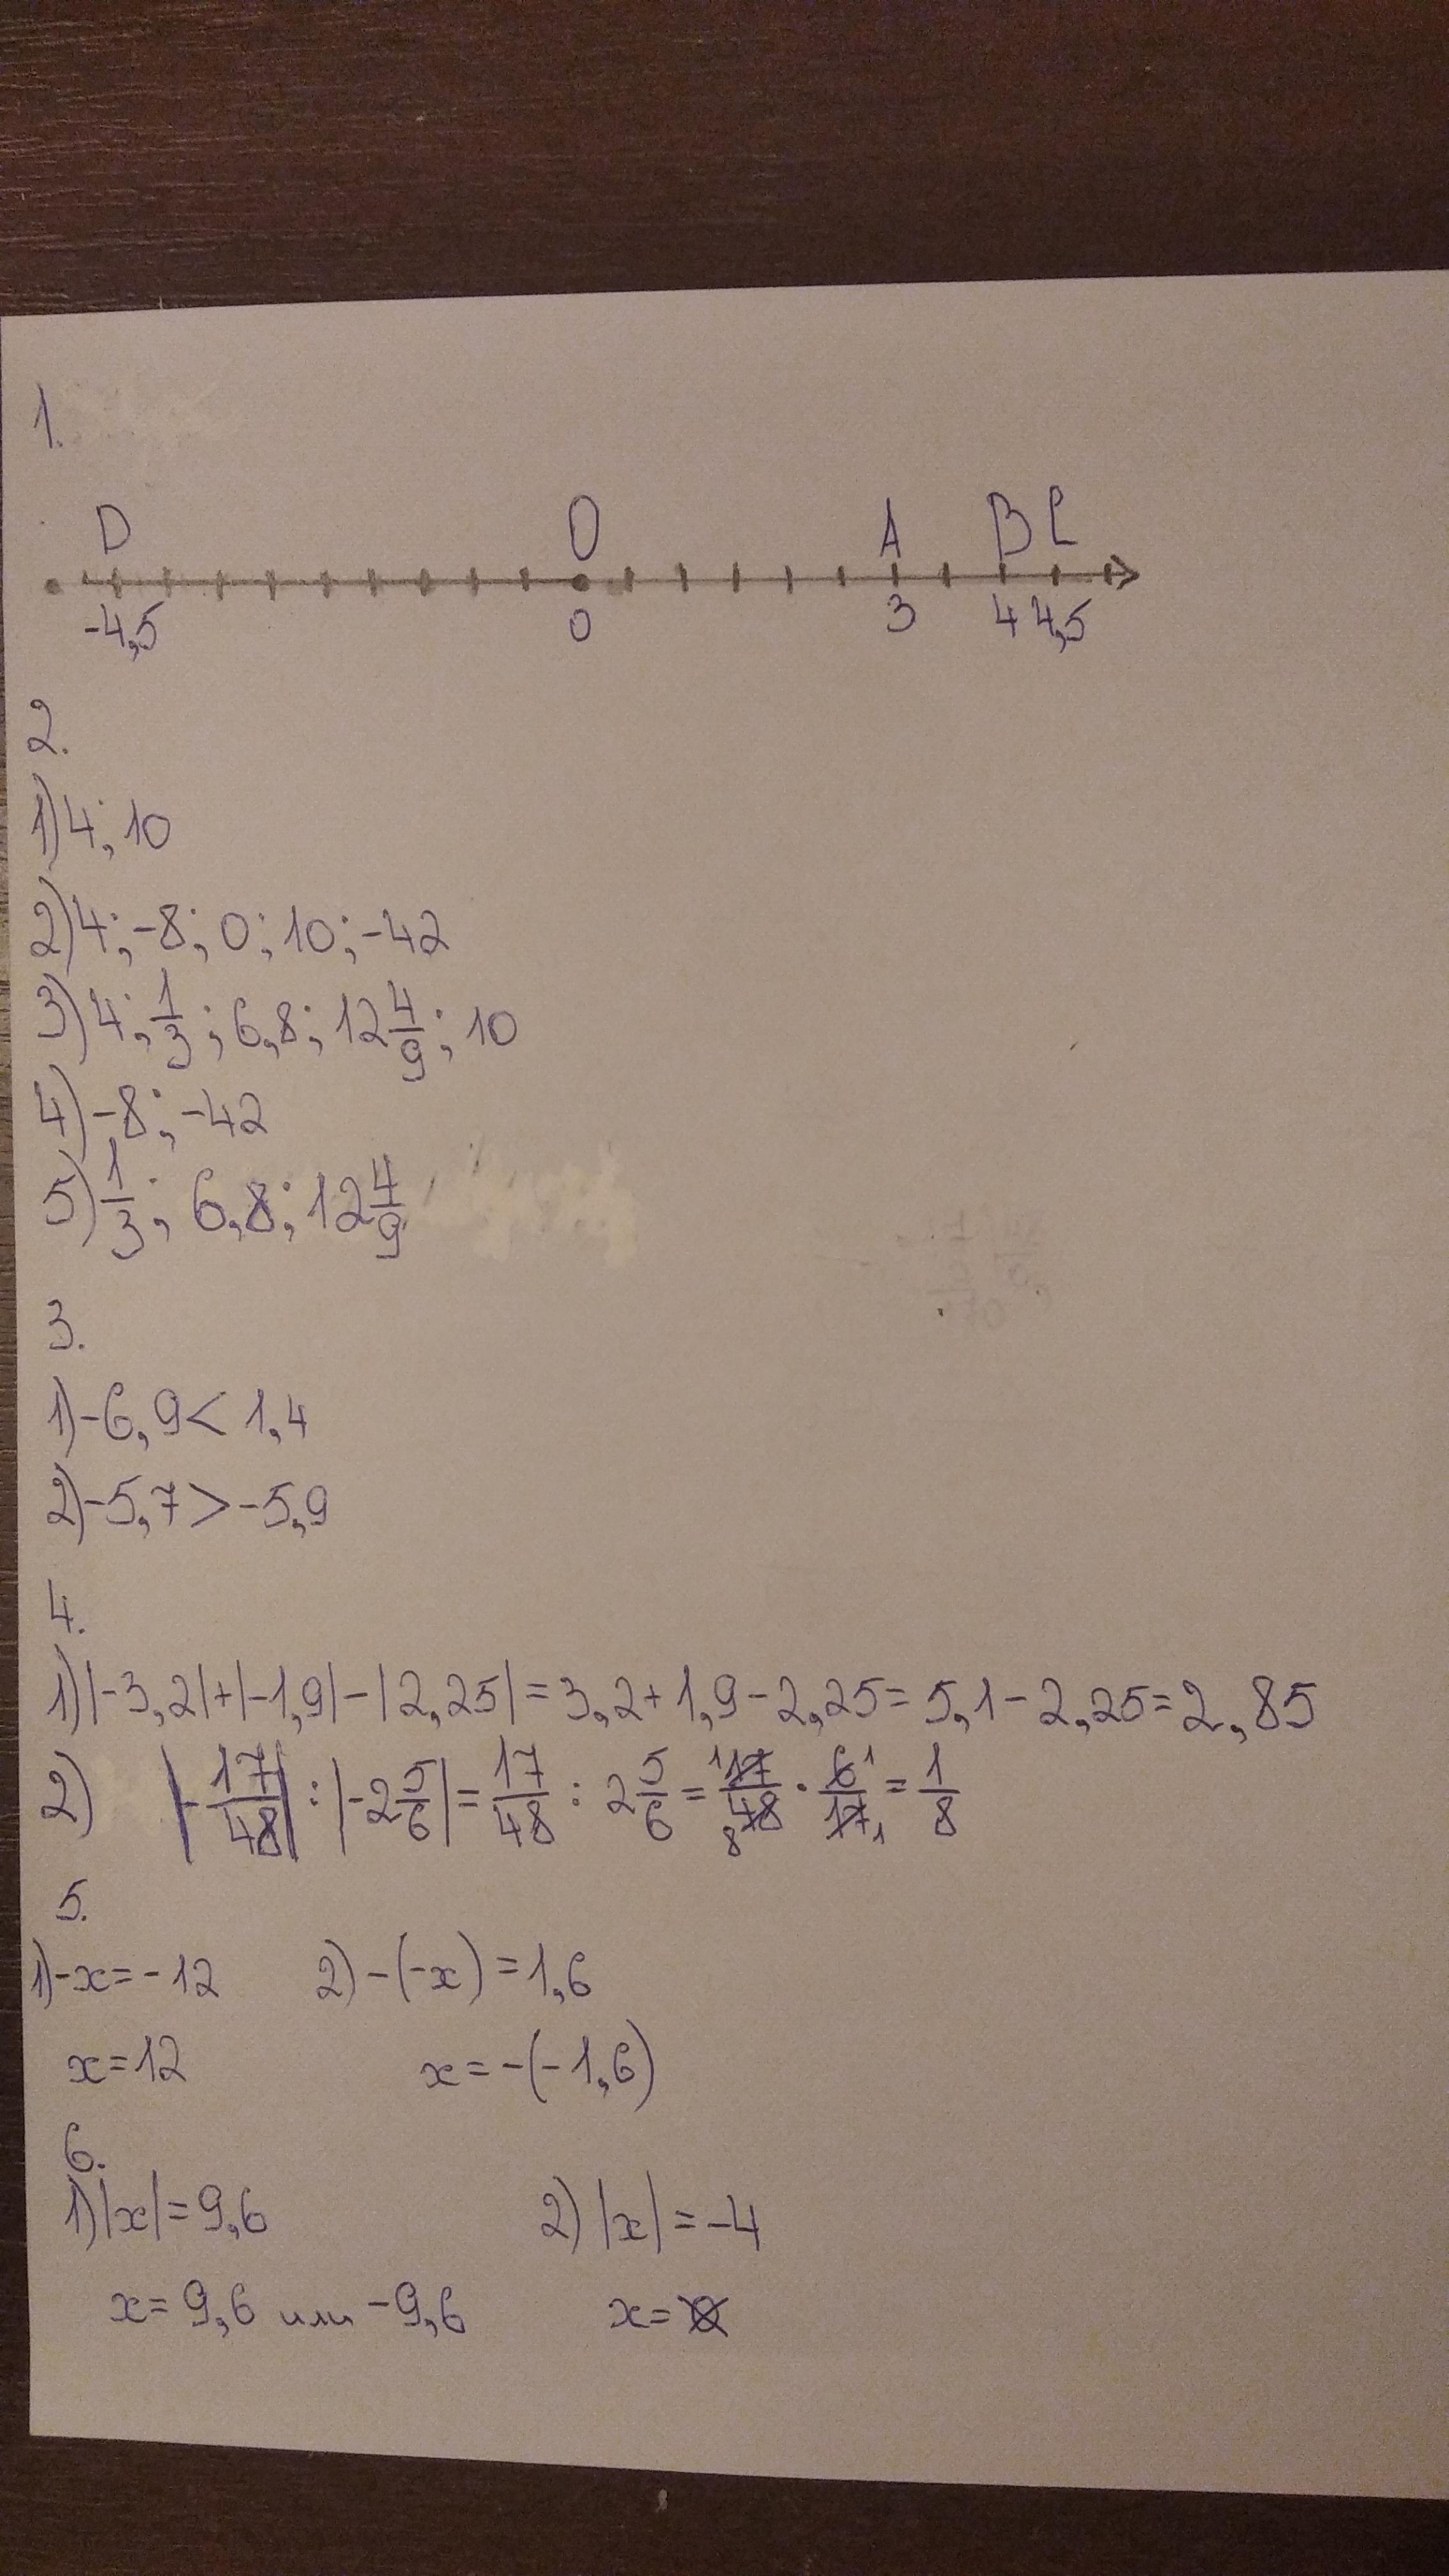 1.
D O A B C
-4,5 0 3 4 4,5
2.
1) 4; 10
2) 4; -8; 0; 10; -42
3) 4; 1/3; 6,8; 12 4/9; 10
4) -8; -42
5) 1/3; 6,8; 12 4/9
3.
1) -6,9 < 1,4
2) -5,7 > -5,9
4.
1) |-3,2|+|-1,9|-|2,25|=3,2+1,9-2,25=5,1-2,25=2,85
2) |-17/48| : |-2 5/6| = 17/48 : 2 5/6 = 17/48 · 6/17 = 1/8
5.
1) -x=-12 2) -(-x)=1,6
x=12 x=-(-1,6)
6.
1) |x|=9,6 2) |x|=-4
x=9,6 или -9,6 x=